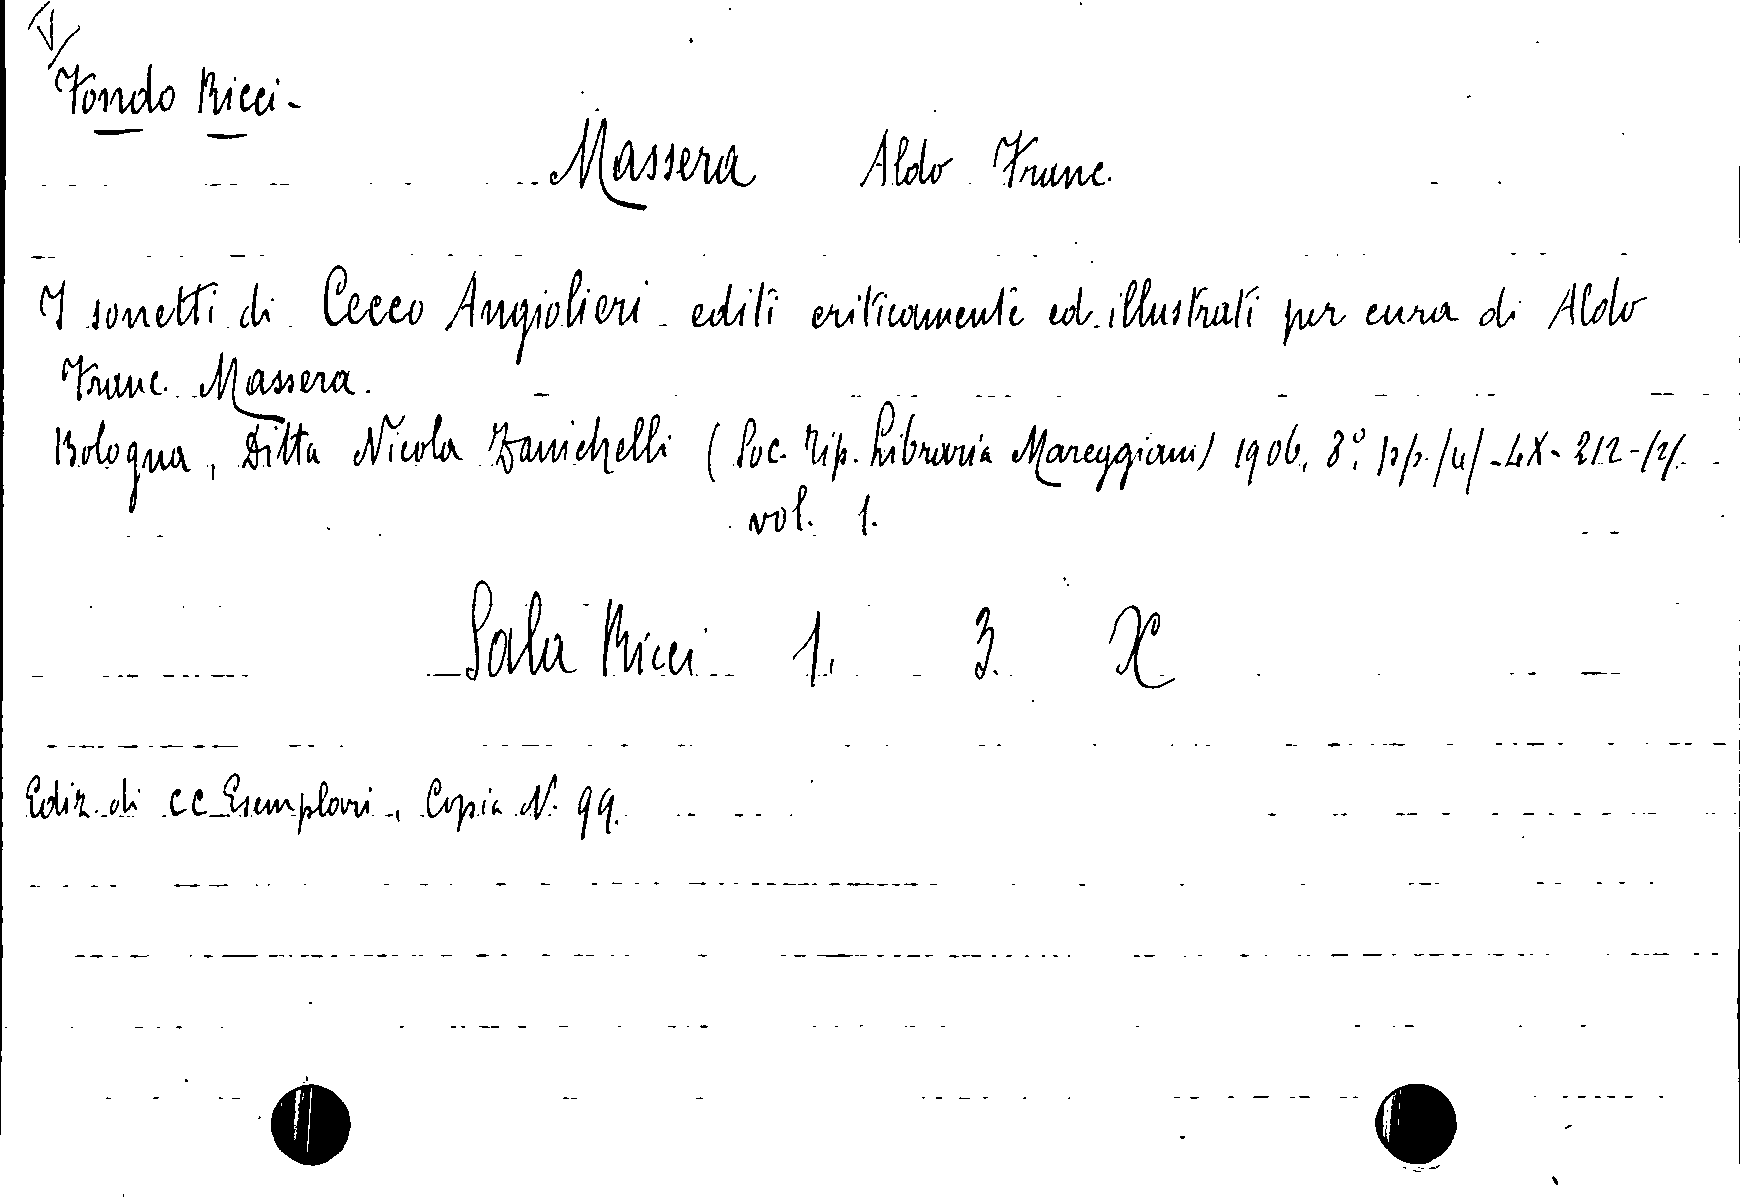 Fondo Ricci -
Massera Aldo Franc.
I sonetti di Cecco Angiolieri editi criticamente ed illustrati per cura di Aldo
Franc. Massera.
Bologna, Ditta Nicola Zanichelli (Soc. Tip. Libraria Mareggiani) 1906. 8°. pp. /4/-LX-212-/2/.
vol. 1.
Sala Ricci 1. 3. X
Ediz. di CC Esemplari, Copia N. 99.